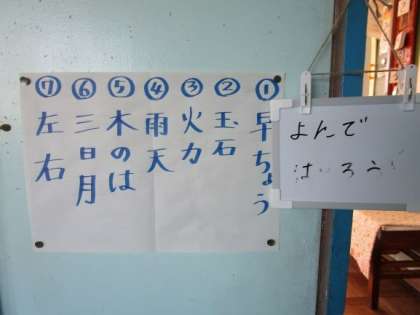 ①早ちょう
②玉石
③火力
④雨天
⑤木のは
⑥三日月
⑦左右
よんで
はいろう